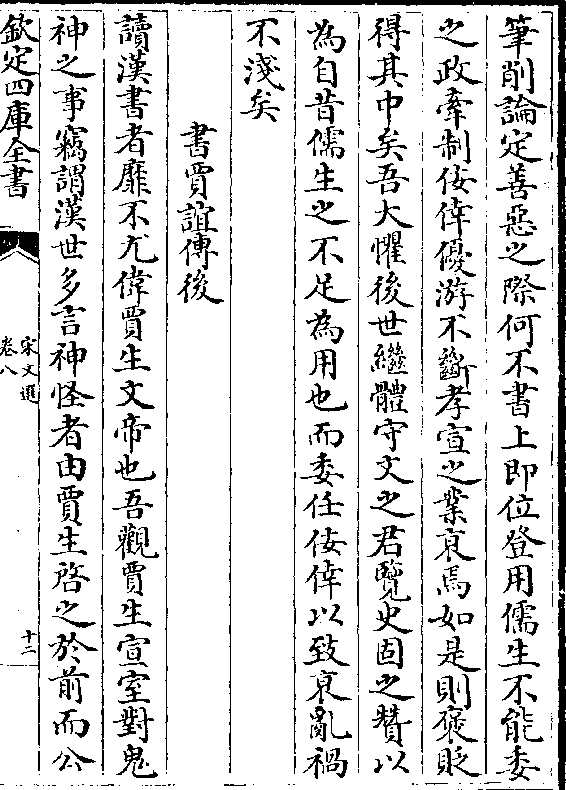 筆削論定善惡之際何不書上即位登用儒生不能委
之政牽制佞倖優游不斷孝宣之業衰焉如是則褒貶
得其中矣吾大懼後世繼體守文之君覽史固之贊以
為自昔儒生之不足為用也而委任佞倖以致衰亂禍
不淺矣
書賈誼傳後
讀漢書者靡不尤偉賈生文帝也吾觀賈生宣室對鬼
神之事竊謂漢世多言神怪者由賈生啓之於前而公
欽定四庫全書
宋文選
卷八
十二